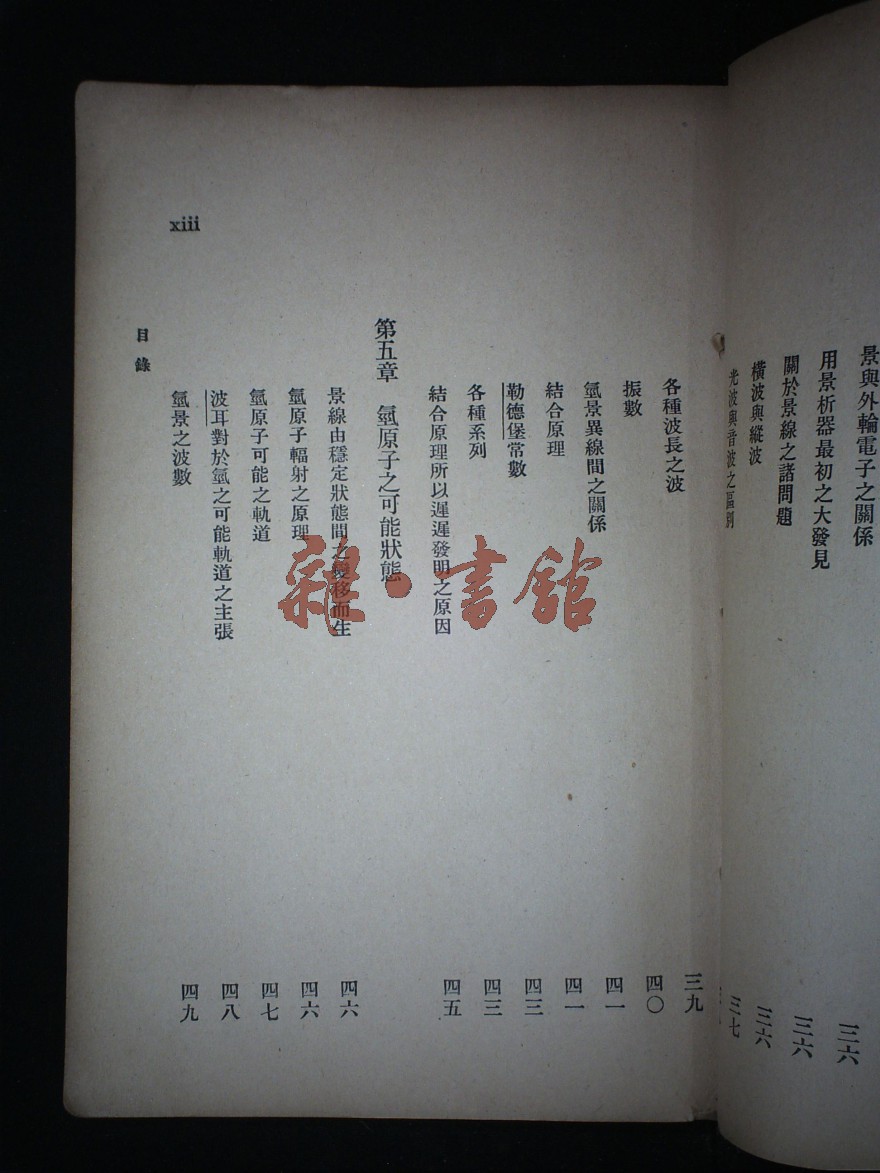 景與外輪電子之關係 三六
用景析器最初之大發見 三六
關於景線之諸問題 三六
橫波與縱波 三七
光波與音波之區別
各種波長之波 三九
振數 四〇
氫景異線間之關係 四一
結合原理 四一
勒德堡常數 四三
各種系列 四三
結合原理所以遲遲發明之原因 四五
第五章 氫原子之可能狀態
景線由穩定狀態間之變移而生 四六
氫原子輻射之原理 四六
氫原子可能之軌道 四七
波耳對於氫之可能軌道之主張 四八
氫景之波數 四九
目錄
xiii
雜·書館